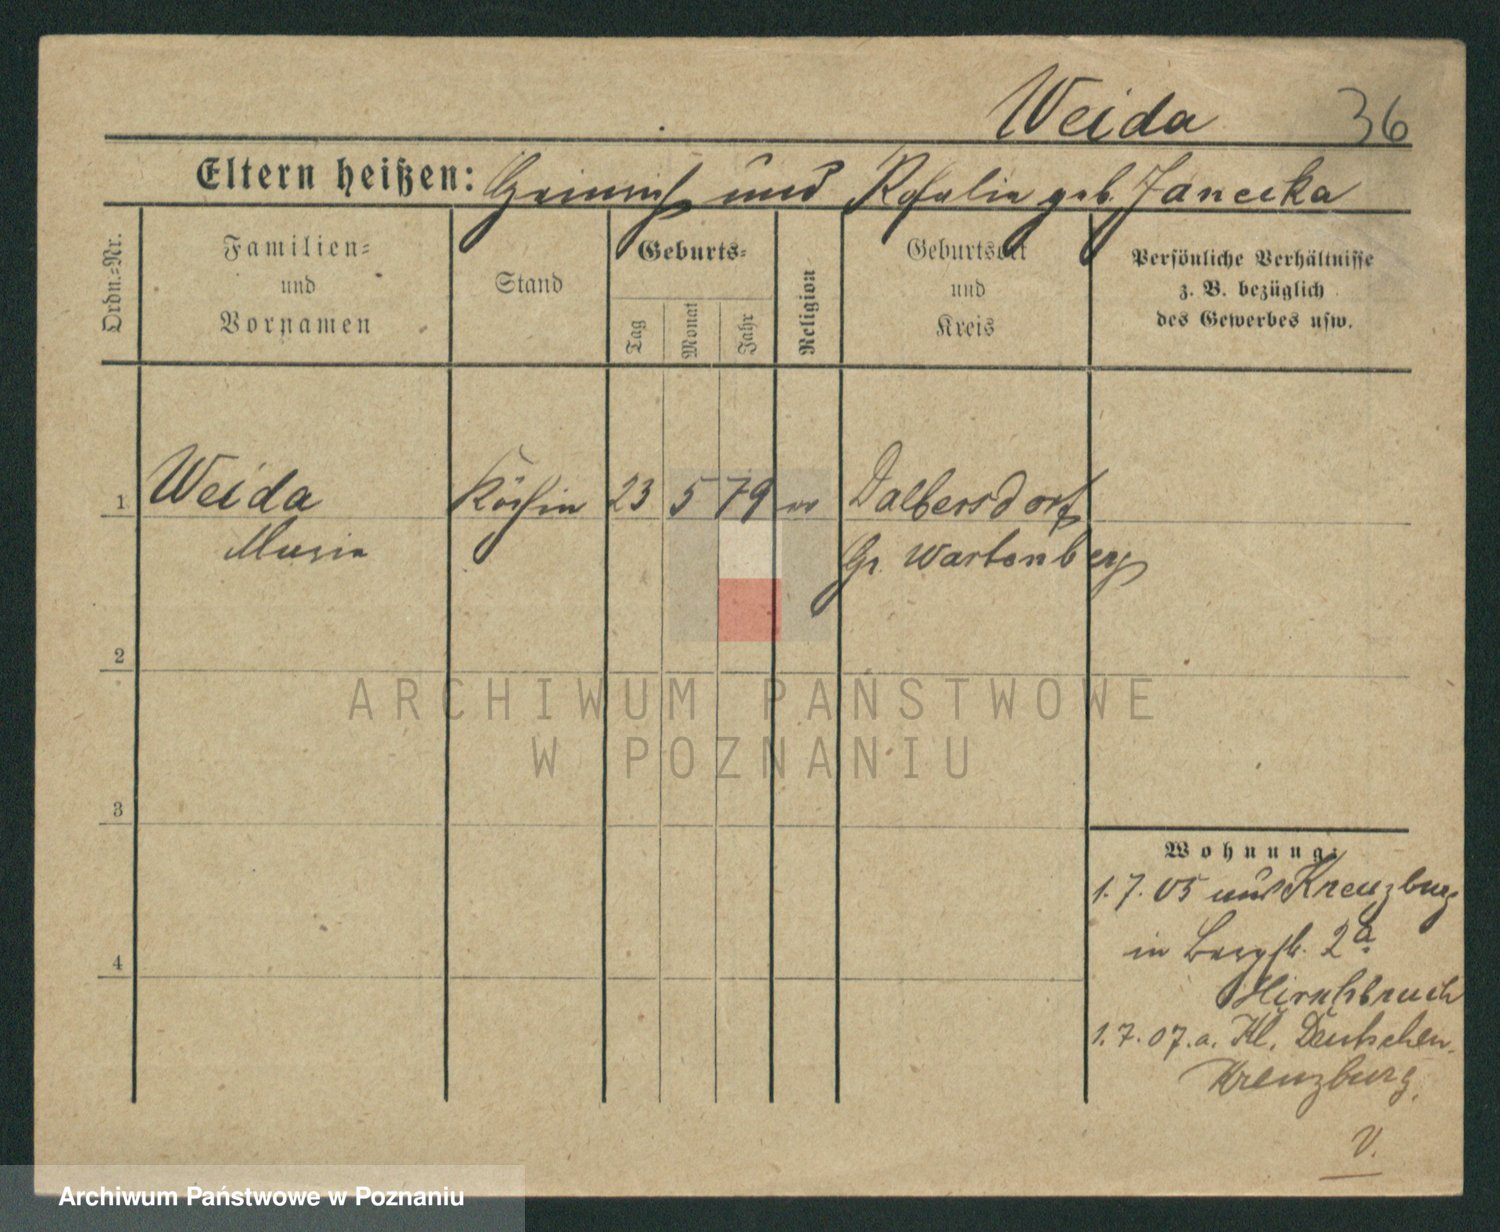 Weida 36
Eltern heißen: Heinrich und Rosalie geb. Janecka
Ordn.-Nr.
Familien-
und
Vornamen
Stand
Geburts-
Tag
Monat
Jahr
Religion
Geburtsort
und
Kreis
Persönliche Verhältnisse
z. B. bezüglich
des Gewerbes usw.
1 Weida Köchin 23 5 79 Dalbersdorf
Maria Gr. Wartenberg
2
3
4
Wohnung:
1.7.05 aus Kreuzburg
in Bergstr. 2a
Hirschbruch
1.7.07. a. Kl. Deutschen
Kreuzburg.
V.
ARCHIWUM PAŃSTWOWE
W POZNANIU
Archiwum Państwowe w Poznaniu